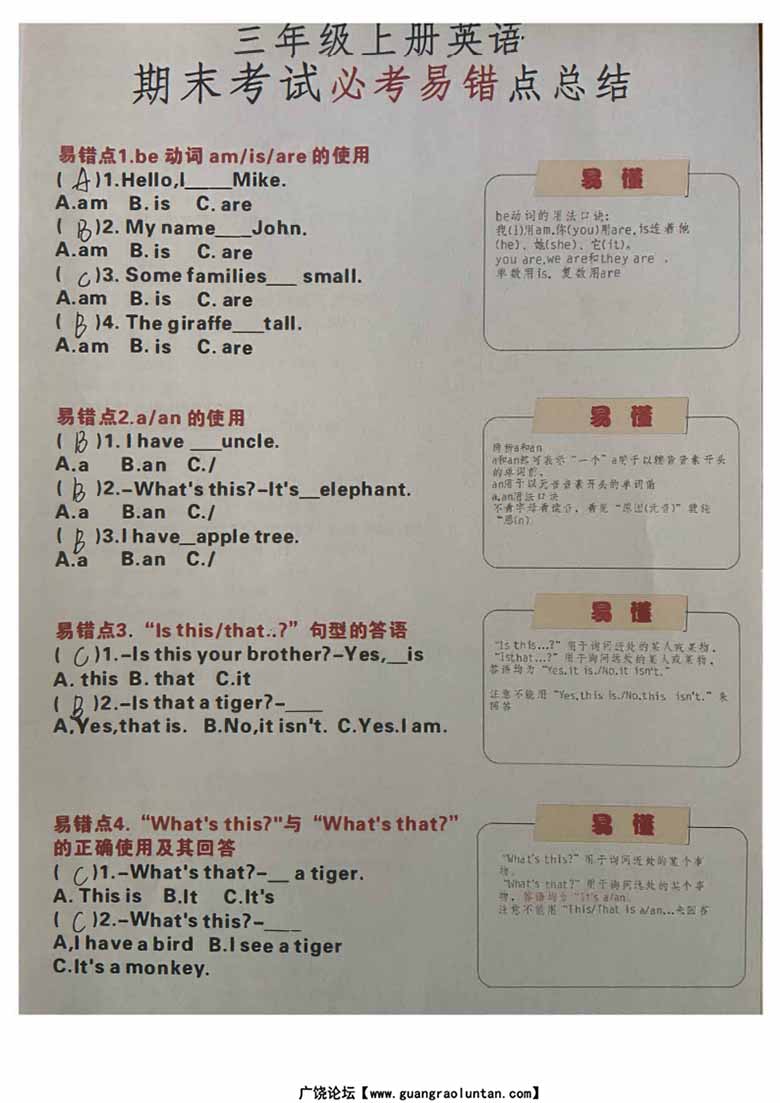 三年级上册英语
期末考试必考易错点总结
易错点1.be 动词 am/is/are 的使用
( A )1.Hello,I____Mike.
A.am B. is C. are
( B )2. My name___John.
A.am B. is C. are
( C )3. Some families___ small.
A.am B. is C. are
( B )4. The giraffe___tall.
A.am B. is C. are
易懂
be动词的用法口诀:
我(I)用am,你(you)用are,is连着他
(he)、她(she)、它(it)。
you are,we are和they are .
单数用is, 复数用are
易错点2.a/an 的使用
( B )1. I have ___uncle.
A.a B.an C./
( B )2.-What's this?-It's__elephant.
A.a B.an C./
( B )3.I have_apple tree.
A.a B.an C./
易懂
辨析a和an
a和an都可表示“一个”a用于以辅音音素开头
的单词前,
an用于以元音音素开头的单词前
a,an用法口诀
不看字母看读音,
“恩(n)
易错点3.“Is this/that..?”句型的答语
( C )1.-Is this your brother?-Yes,__is
A. this B. that C.it
( B )2.-Is that a tiger?-____
A,Yes,that is. B.No,it isn't. C.Yes.I am.
易懂
“Is this...?”用于询问近处的某人或某物,
“Isthat...?”用于询问远处的某人或某物,
答语均为“Yes,it is./No,it isn't.”
注意不能用“Yes,this is./No,this isn't.”来
回答
易错点4.“What's this?"与“What's that?”
的正确使用及其回答
( C )1.-What's that?-__ a tiger.
A. This is B.It C.It's
( C )2.-What's this?-____
A,I have a bird B.I see a tiger
C.It's a monkey.
易懂
“What's this?”用于询问近处的某个事
物。
“What's that?”用于询问远处的某个事
物, 答语均为“It's a/an.
注意不能用“This/That is a/an...来回答
广饶论坛【www.guangraoluntan.com】